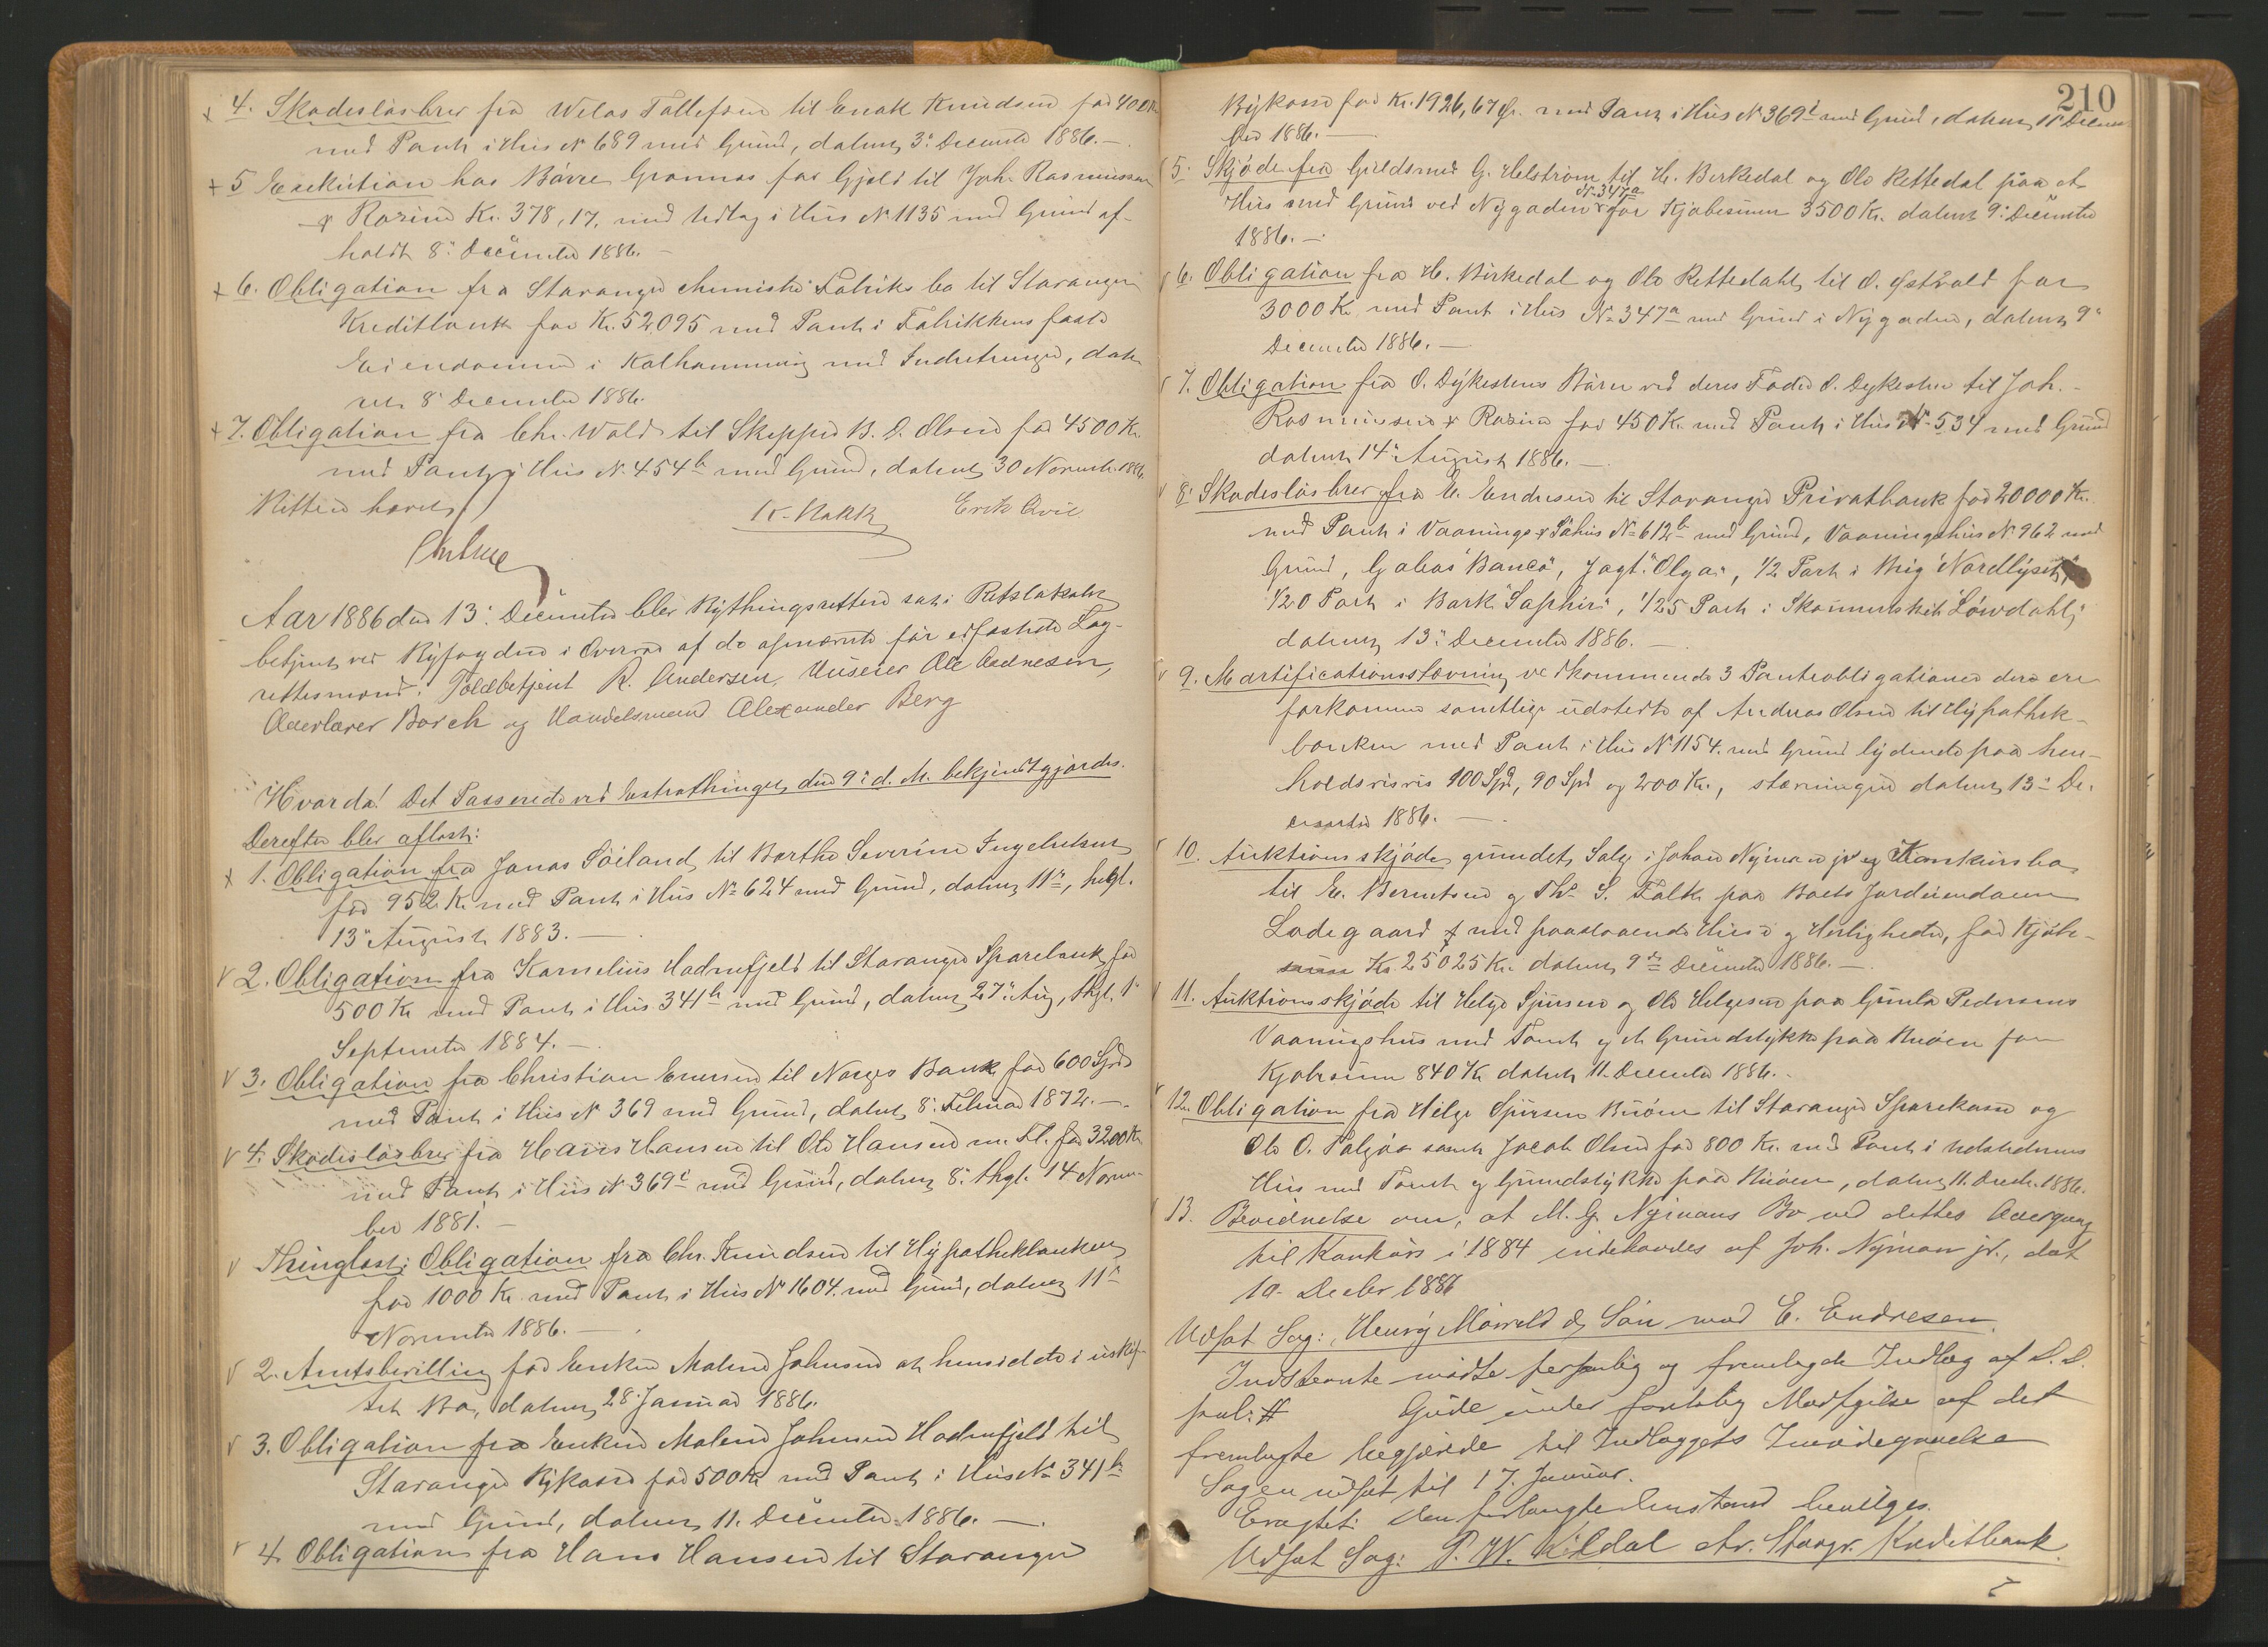 4. Skadesløsbrev fra Welas Tollefsen til Enok Knudsen for 400 Kr
med Pant i Hus No 689 med Grund, dateret 3. December 1886. —
5 Exekution hos Børre Grønnos for Gjeld til Joh. Rasmussen
& Rosine Kr. 378,17, med Udlæg i Hus No 1135 med Grund af-
holdt 8. December 1886. —
6. Obligation fra Stavanger chemiske Fabriks bo til Stavanger
Kreditbank for Kr. 52,095 med Pant i Fabrikkens faste
Eiendomme i Kalhammervig med Indretninger, date-
ret 8 December 1886.
7. Obligation fra Chr. Wold til Skipper B. O. Olsen for 4500 Kr.
med Pant i Hus No. 454b med Grund, dateret 30 Novemb. 1886
Retten hævet
K. Hakk Erik Qvie
Aar 1886 den 13. December blev Bythingsretten sat i Retslokalet
betjent ved Byfogden i Overvær af de opnævnte før edfæstede Lag-
rettesmænd: Toldbetjent R. Andersen, Ole Andresen,
Overlærer Borch og Handelsmand Alexander Berg
Hvorda! Det Passerede ved Extrathinget den 9. d. M. bekjendtgjordes.
Derefter blev aflæst:
1. Obligation fra Jonas Soiland til Berthe Severine Ingebretsen
for 952 Kr. med Pant i Hus No 624 med Grund, dateret 11te, thgl.
13. August 1883. —
2. Obligation fra Kornelius Hodnefjeld til Stavanger Sparebank for
500 Kr med Pant i Hus 341b med Grund, dateret 27. Aug, thgl. 1.
September 1884. —
3. Obligation fra Christian Enersen til Norges Bank for 600 Spd.
med Pant i Hus No 369 med Grund, dateret 8. Februar 1872. —
4. Skadesløsbrev fra Hans Hansen til Ole Hansen m. Fl. for 3200 Kr
med Pant i Hus No 369c med Grund, dateret 8. thgl. 14 Novem-
ber 1881. —
Thinglæst: Obligation fra Chr. Knudsen til Hypothekbanken
for 1000 Kr. med Pant i Hus No 1604. med Grund, dateret 11te
November 1886. —
2. Amtsbevilling for Enken Malene Johnsen at hensidde i uskif-
tet Bo, dateret 28 Januar 1886.
3. Obligation fra Enken Malene Johnsen Hodnefjeld til
Stavanger Bykasse for 500 Kr med Pant i Hus No 341b
med Grund, dateret 11. December 1886. —
4. Obligation fra Hans Hansen til Stavanger
210
Bykasse for Kr. 1926,67 Ør. med Pant i Hus No 369c med Grund, dateret 11 Decem-
ber 1886. —
5. Skjøde fra Guldsmed G. Helstrøm til H. Berkedal og Ole Rettedal paa et
Hus med Grund ved Nygaden No 347a for Kjøbesum 3500 Kr. dateret 9. December
1886. —
6. Obligation fra H. Birkedal og Ole Rettedahl til O. Østbold for
3000 Kr. med Pant i Hus No 347a med Grund i Nygaden, dateret 9.
December 1886. —
7. Obligation fra O. Dykestens Børn ved deres Fader O. Dykesten til Joh.
Rasmussen & Rosine for 450 Kr. med Pant i Hus No 534 med Grund
dateret 14. August 1886. —
8. Skadesløsbrev fra E. Endresen til Stavanger Privatbank for 20000 Kr.
med Pant i Vaanings & Søhus No 612b med Grund, Vaaningshus No 962 med
Grund, Galeas "Banco", Jagt "Olga", 1/2 Part i Brig "Nordlyset",
1/20 Part i Bark "Saphir", 1/25 Part i Skonnertskib "Løwdahl",
dateret 13. December 1886. —
9. Mortificationsstævning vedkommende 3 Panteobligationer der ere
forkomne samtlige udstedte af Andreas Olsen til Hypothek-
banken med Pant i Hus No 1154. med Grund lydende paa hen-
holdsvis 100 Spd, 90 Spd og 200 Kr., stævningen dateret 13. De-
cember 1886. —
10. Auktionsskjøde grundet Salg i Johan Nyman jr. og Konkursbo
til E. Berentsen og Th. S. Falk paa Boets Jordeiendom
Ladegaard med paastaaende Huse og Herligheder, for Kjøbe-
summa Kr. 25025 Kr. dateret 9de December 1886. —
11. Auktionsskjøde til Helge Sjursen og Ole Helgesen paa Gunla Pedersens
Vaaningshus med Tomt og et Grundstykke paa Buøen for
Kjøbesum 840 Kr dateret 11. December 1886. —
12. Obligation fra Helge Sjursen Buøen til Stavanger Sparekasse og
Ole O. samt Jacob Olsen for 800 Kr. med Pant i Udstederens
Hus med Tomt og Grundstykke paa Buøen, dateret 11. Decbr. 1886.
13. Bevidnelse om, at M. G. Nymans Bo ved dettes Overgang
til Konkurs i 1884 indehavdes af Joh. Nyman jr., dat
10. Decbr 1886
Udsat Sag: Henry & Søn mod E. Endresen.
Indstevnte mødte personlig og fremlagde Indlæg af d. d.
Gude under foreløbig Modsigelse af det
fremlagte begjærede til Indlæggets Imødegaaelse
Sagen udsat til 17. Januar.
Eragtet: den forlangte Anstand bevilges.
Udsat Sag: P. W. Kildal ctr. Stavgr. Kreditbank